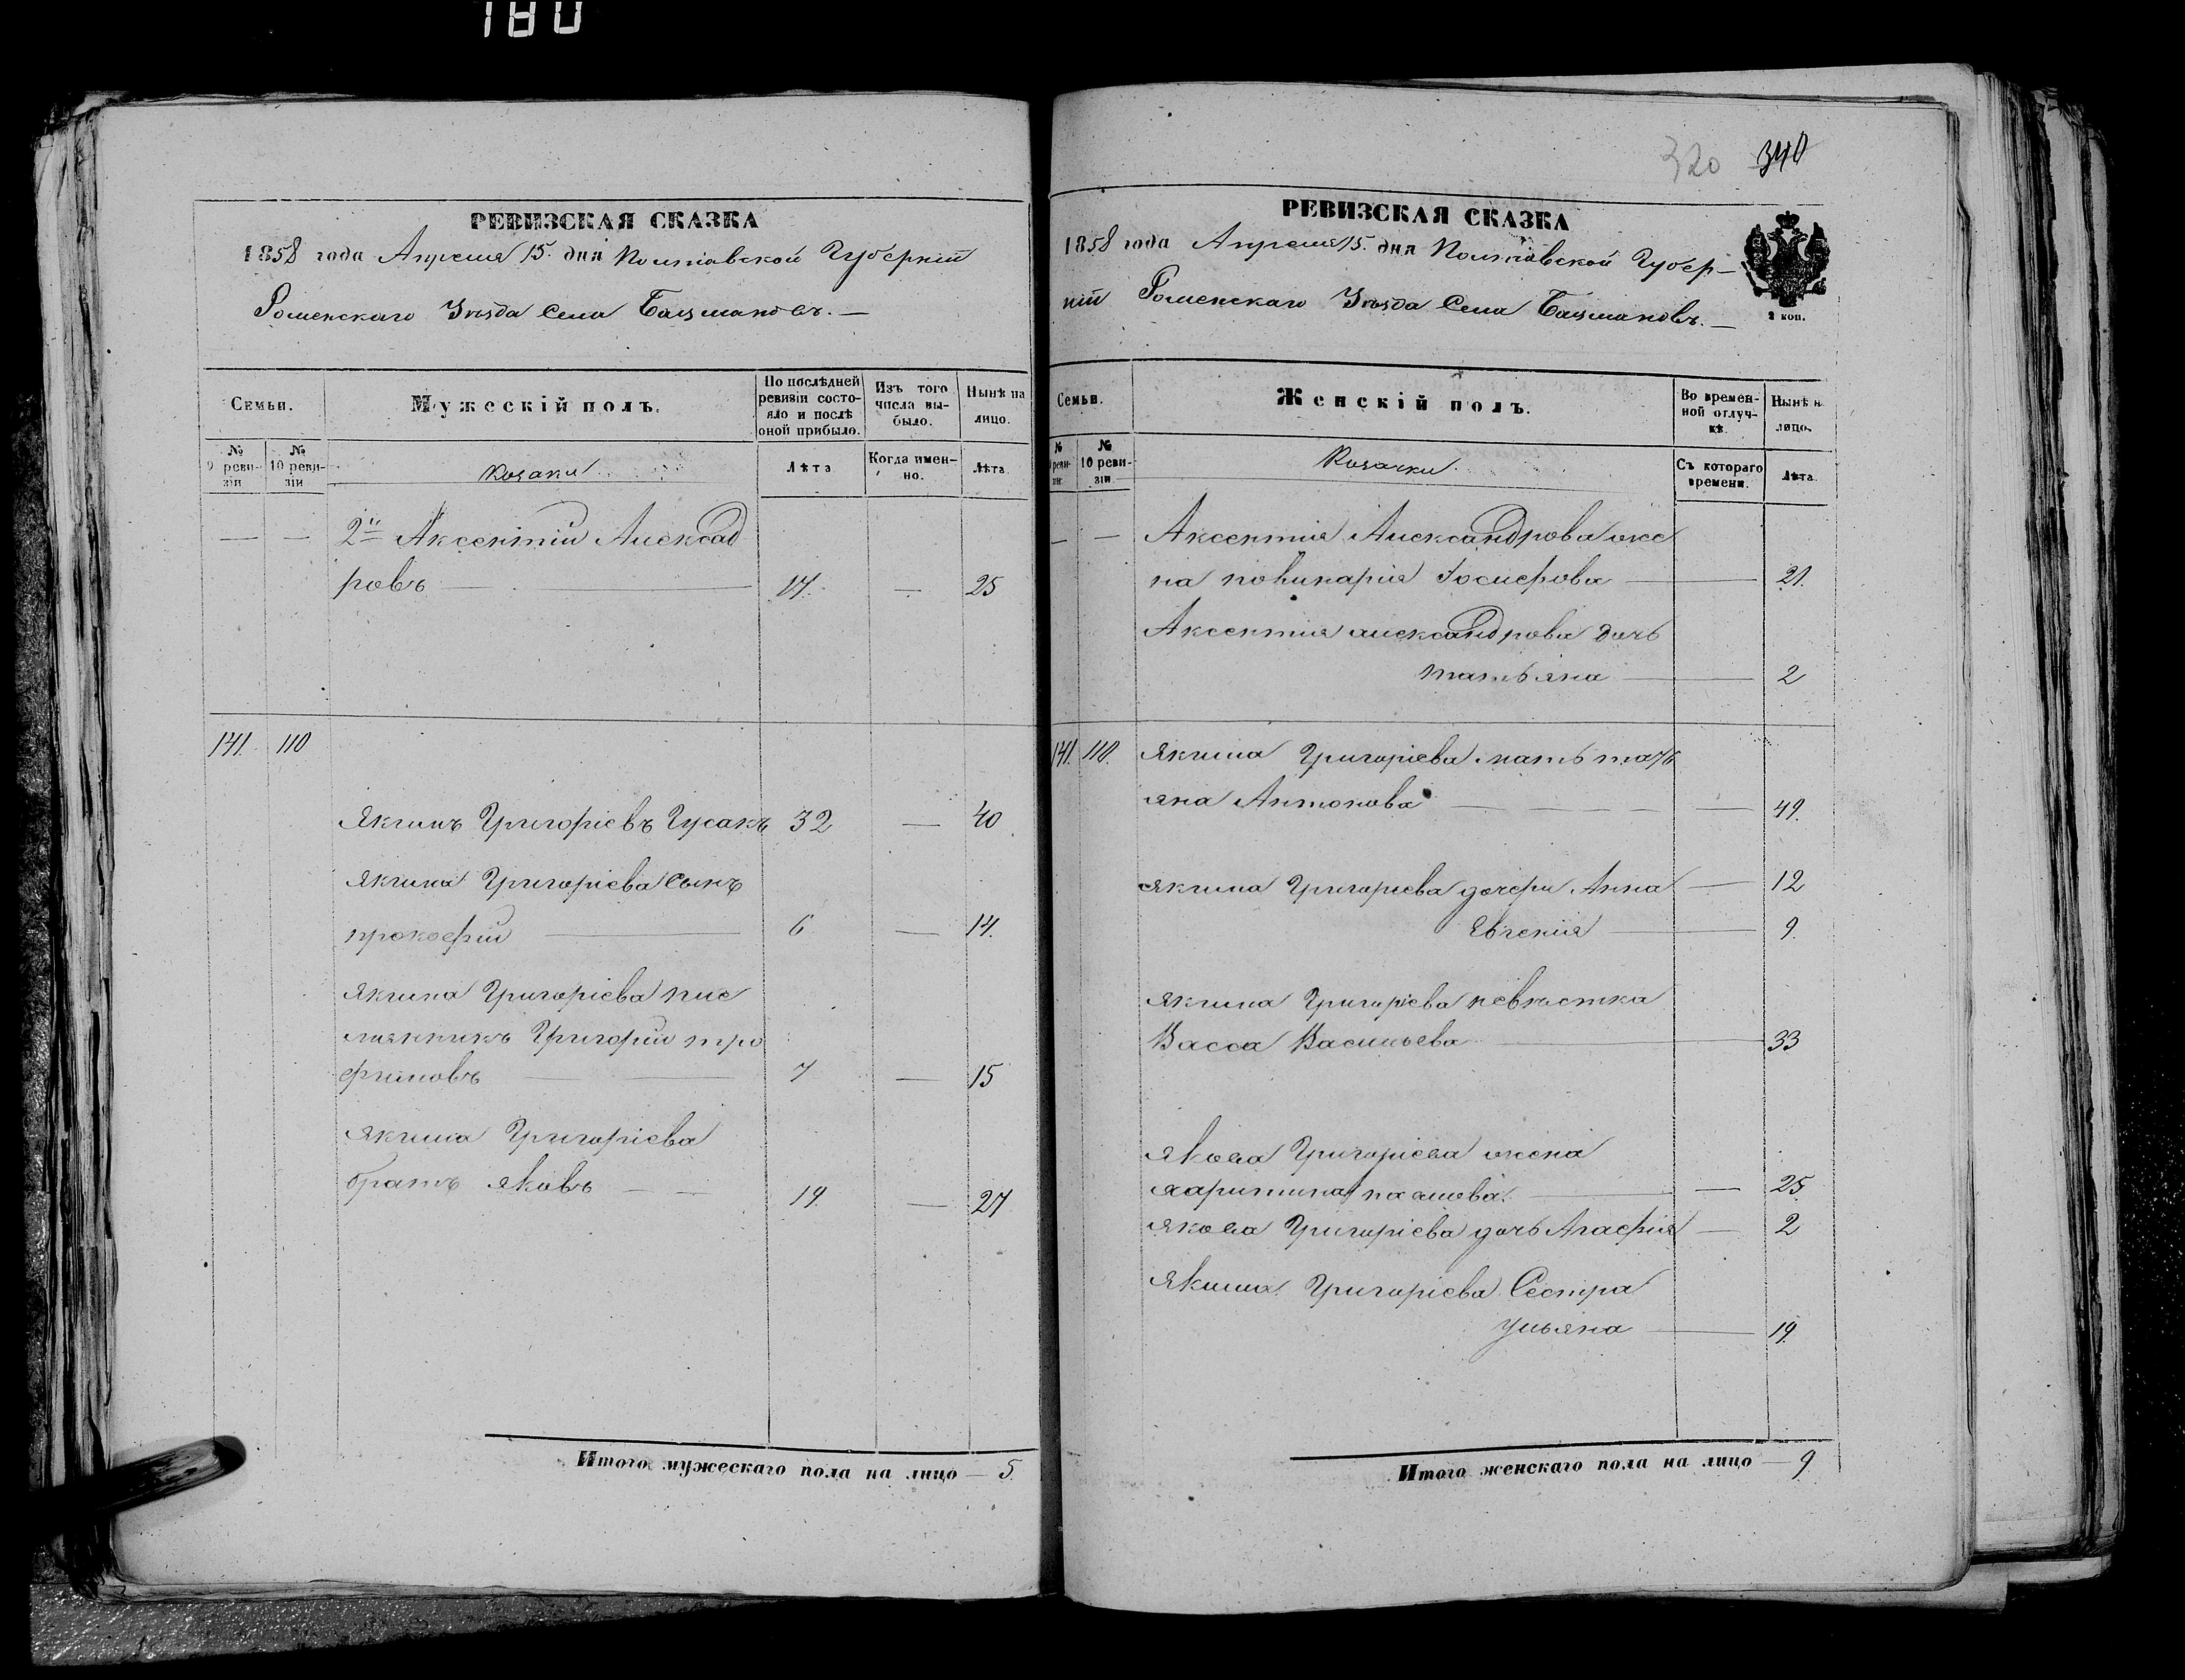 180
320 340
РЕВИЗСКАЯ СКАЗКА
1858 года Апреля 15. дня Полтавской Губерніи
Роменскаго Уѣзда Села Бацмановъ. —
Семьи.
Мужескій полъ.
По послѣдней ревизіи состояло и послѣ оной прибыло.
Изъ того числа выбыло.
Нынѣ на лицо.
№ 9 ревизіи
№ 10 ревизіи
Козаки
Лѣта
Когда именно.
Лѣта
— — 2й Аксентій Алексад
ровъ — 17. — 25
141. 110
Якимъ Григоріевъ Гусакъ 32 — 40
Якима Григоріева сынъ
прокофій — 6 — 14.
Якима Григоріева пле
мянникъ Григорій тро
фимовъ — 7 — 15
Якима Григоріева
братъ Яковъ — — 19. — 27
Итого мужескаго пола на лицо — 5.
РЕВИЗСКАЯ СКАЗКА
1858 года Апреля 15. дня Полтавской Губер—
ніи Роменскаго Уѣзда Села Бацмановъ. —
2 коп.
Семьи.
Женскій полъ.
Во временной отлучкѣ.
Нынѣ н лицо.
№ 9 ревизіи
№ 10 ревизіи
Козачки
Съ котораго времени.
Лѣта.
— — Аксентія Александрова же
на Іосифова — 21.
Аксентия александрова дочь
татьяна — 2
141. 110. Якима Григоріева мать тать
яна Антонова — 49.
якима Григоріева дочери Анна — 12
Евгенія — 9.
якима Григоріева невѣстка
Васса Васильева — 33
Якова Григоріева жена
харитина — 25
якова Григоріева дочь Агафія — 2
Якима Григоріева Сестра
ульяна — 19.
Итого женскаго пола на лицо — 9